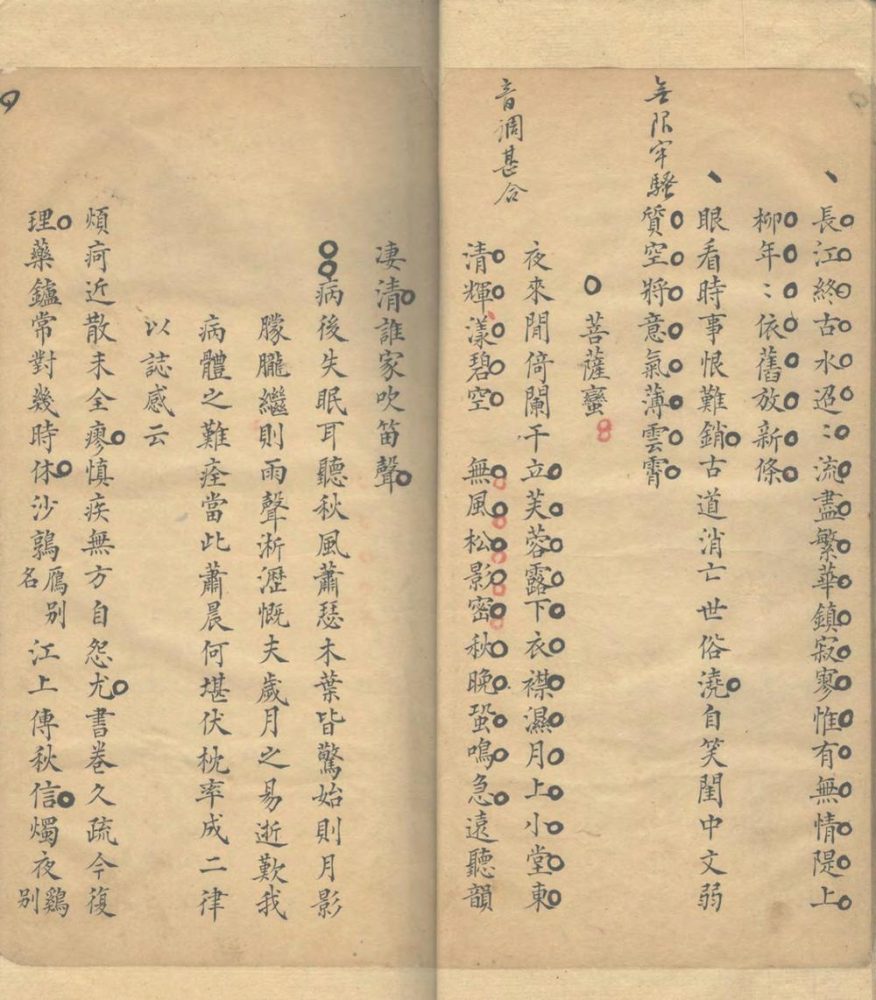 長江終古水迢〻流盡繁華鎮寂寥惟有無情隄上
柳年〻依舊放新條
眼看時事恨難銷古道消亡世俗澆自笑閨中文弱
無限牢騷
質空將意氣薄雲霄
菩薩蠻
夜來閒倚闌干立芙蓉露下衣襟濕月上小堂東
音調甚合
清輝漾碧空 無風松影密秋晚蛩鳴急遠聽韻
淒清誰家吹笛聲
病後失眠耳聽秋風蕭瑟木葉皆驚始則月影
朦朧繼則雨聲淅瀝慨夫歲月之易逝歎我
病體之難痊當此蕭晨何堪伏枕率成二律
以誌感云
煩疴近散未全瘳慎疾無方自怨尤書卷久疏今復
理藥鑪常對幾時休沙鶉雁別名江上傳秋信燭夜雞別